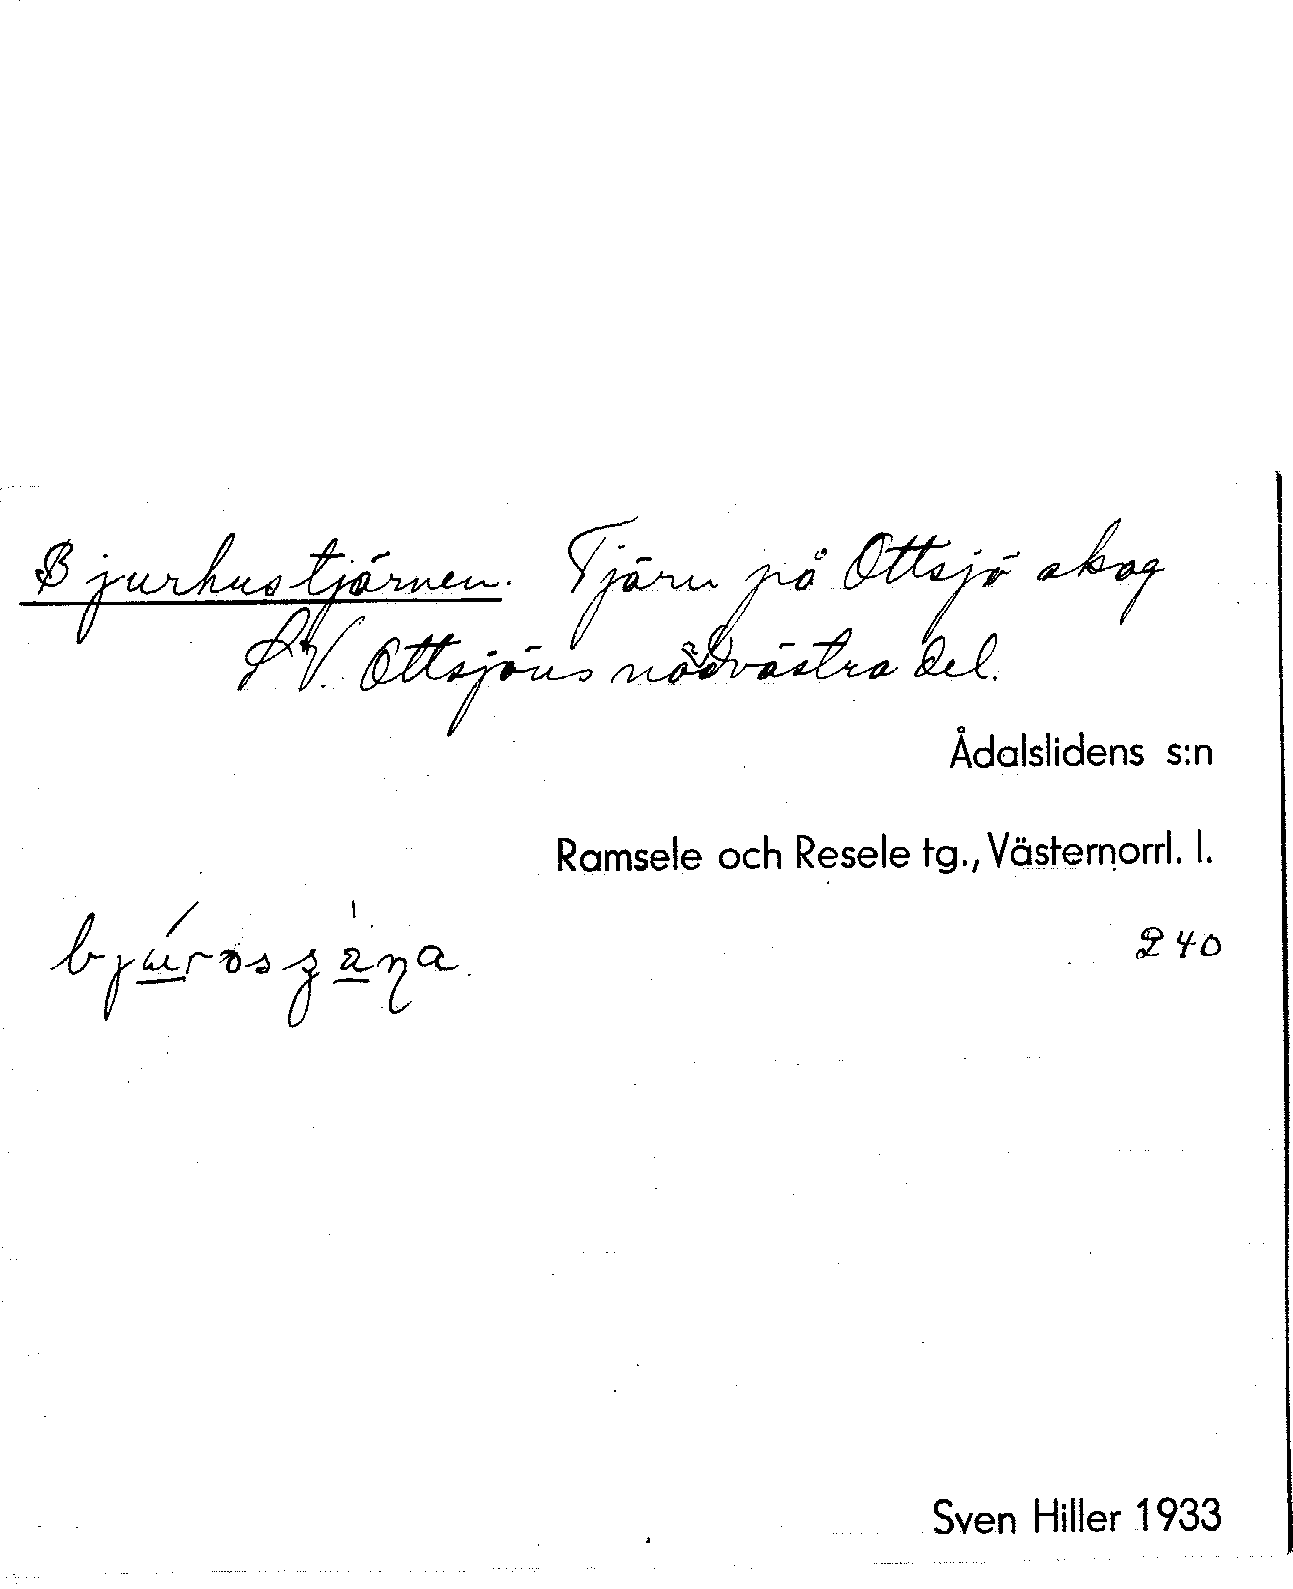 Bjurhustjärnen. Tjärn på Ottsjö skog
SV. Ottsjöns nordvästra del.
Ådalslidens s:n
Ramsele och Resele tg., Västernorrl. l.
240
Sven Hiller 1933